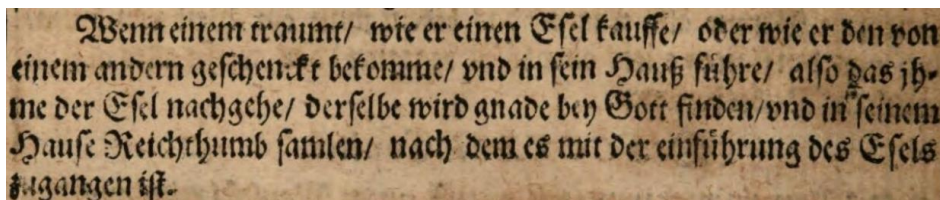 Wenn einem traumt/ wie er einen Esel kauffe/ oder wie er den von
einem andern geschenckt bekomme/ vnd in sein Hauß führe/ also das jh-
me der Esel nachgehe/ derselbe wird gnade bey Gott finden/ vnd in seinem
Hause Reichthumb samlen/ nach dem es mit der einführung des Esels
zugangen ist.